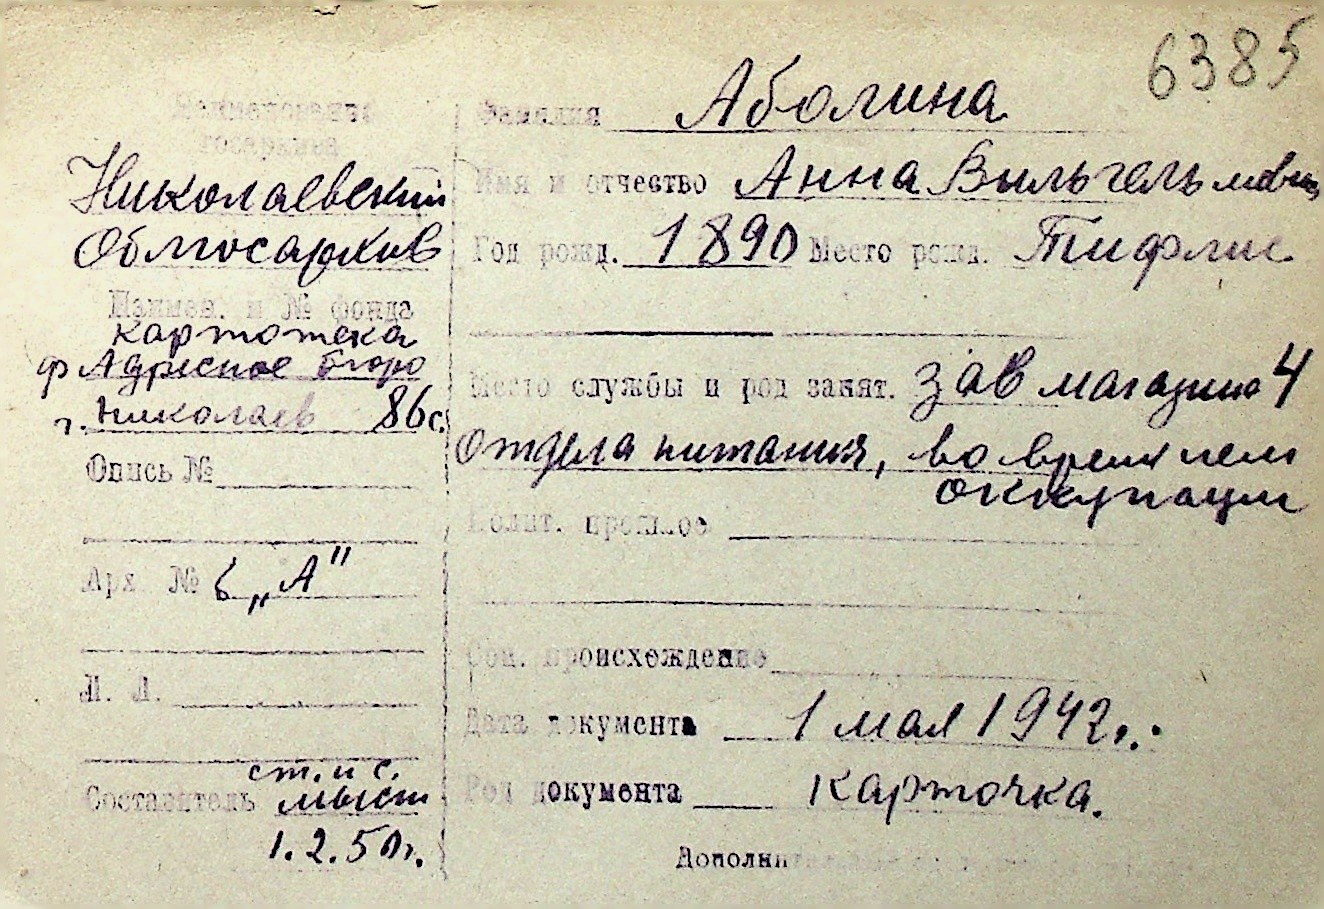 6385
Наименование
госархива
Николаевский
Облгосархив
Наимен. и № фонда
картотека
ф Адресное бюро
г. Николаев 86с.
Опись №
Арх. № „А"
Л. Л.
Составитель ст. н с.
1.2.50г.
Фамилия Аболина
Имя и отчество Анна Вильгельмовна
Год рожд. 1890 Место рожд. Тифлис
Место службы и род занят. зав магазина 4
отдела питания, во время нем
оккупации
Полит. прошлое
Соц. происхождение
Дата документа 1 мая 1942г.
Род документа карточка.